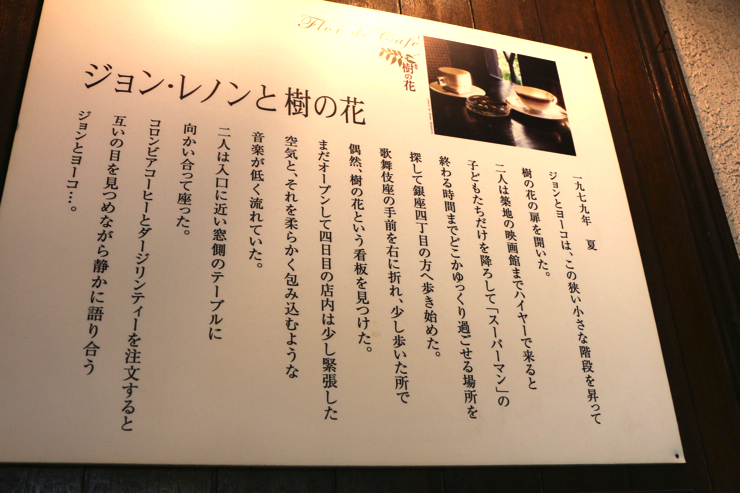 Flor de Café
樹の花
ジョン・レノンと樹の花
一九七九年 夏
ジョンとヨーコは、この狭い小さな階段を昇って
樹の花の扉を開いた。
二人は築地の映画館までハイヤーで来ると
子どもたちだけを降ろして「スーパーマン」の
終わる時間までどこかゆっくり過ごせる場所を
探して銀座四丁目の方へ歩き始めた。
歌舞伎座の手前を右に折れ、少し歩いた所で
偶然、樹の花という看板を見つけた。
まだオープンして四日目の店内は少し緊張した
空気と、それを柔らかく包み込むような
音楽が低く流れていた。
二人は入口に近い窓側のテーブルに
向かい合って座った。
コロンビアコーヒーとダージリンティーを注文すると
互いの目を見つめながら静かに語り合う
ジョンとヨーコ…。